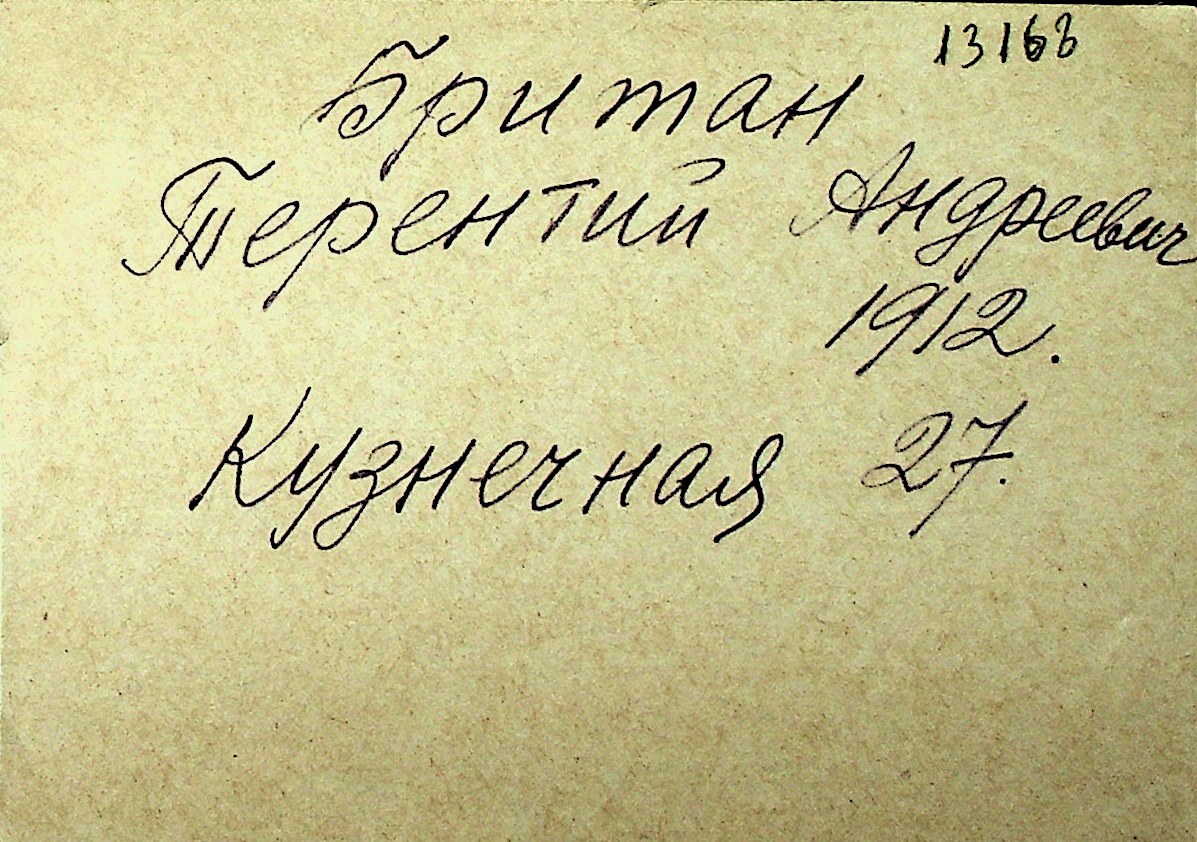 13168
Британ
Терентий Андреевич
1912.
Кузнечная 27.